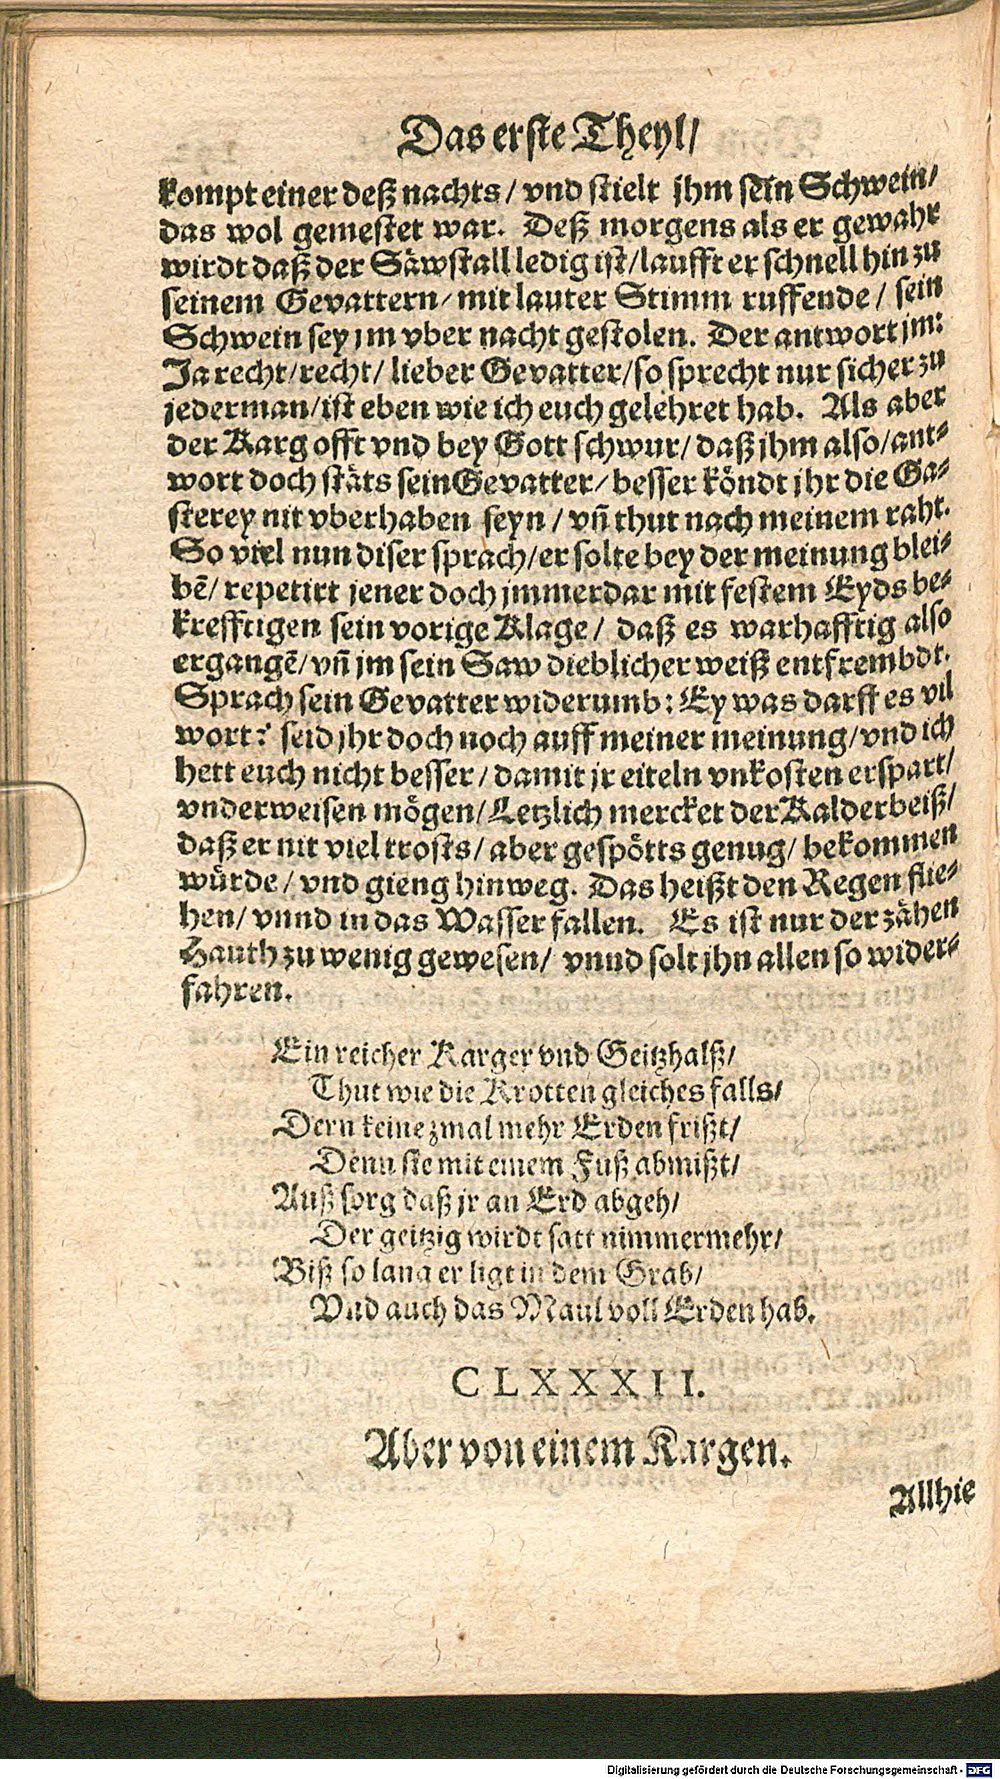 Das erste Theyl/
kompt einer deß nachts/ vnd stielt jhm sein Schwein/
das wol gemestet war. Deß morgens als er gewahr
wirdt daß der Säwstall ledig ist/ laufft er schnell hin zu
seinem Gevattern/ mit lauter Stimm ruffende/ sein
Schwein sey jm vber nacht gestolen. Der antwort jm:
Ja recht/ recht/ lieber Gevatter/ so sprecht nur sicher zu
jederman/ ist eben wie ich euch gelehret hab. Als aber
der Karg offt vnd bey Gott schwur/ daß jhm also/ ant-
wort doch stäts sein Gevatter/ besser köndt jhr die Ga-
sterey nit vberhaben seyn/ vñ thut nach meinem raht.
So viel nun diser sprach/ er solte bey der meinung blei-
bẽ/ repetirt jener doch jmmerdar mit festem Eyds be-
krefftigen sein vorige Klage/ daß es warhafftig also
ergangẽ/ vñ jm sein Saw dieblicher weiß entfrembdt.
Sprach sein Gevatter widerumb: Ey was darff es vil
wort? seid jhr doch noch auff meiner meinung/ vnd ich
hett euch nicht besser/ damit jr eiteln vnkosten erspart/
vnderweisen mögen/ Letzlich mercket der Kalderbeiß/
daß er nit viel trosts/ aber gespötts genug/ bekommen
würde/ vnd gieng hinweg. Das heißt den Regen flie-
hen/ vnnd in das Wasser fallen. Es ist nur der zähen
Hauth zu wenig gewesen/ vnnd solt jhn allen so wider-
fahren.
Ein reicher Karger vnd Geitzhalß/
Thut wie die Krotten gleiches falls/
Dern keine zmal mehr Erden frißt/
Denn sie mit einem Fuß abmißt/
Auß sorg daß jr an Erd abgeh/
Der geitzig wirdt satt nimmermehr/
Biß so lang er ligt in dem Grab/
Vnd auch das Maul voll Erden hab.
CLXXXII.
Aber von einem Kargen.
Allhie
Digitalisierung gefördert durch die Deutsche Forschungsgemeinschaft - DFG